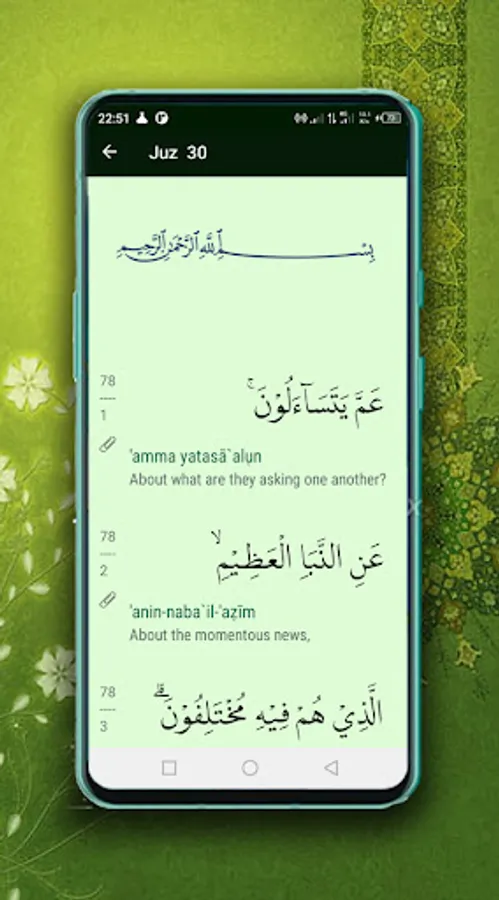 22:51
Juz 30
بِسْمِ ٱللَّهِ ٱلرَّحْمَٰنِ ٱلرَّحِيمِ
78
1
عَمَّ يَتَسَآءَلُوْنَۚ
'amma yatasā`alụn
About what are they asking one another?
78
2
عَنِ النَّبَاِ الْعَظِيْمِۙ
'anin-naba`il-'aẓīm
About the momentous news,
78
3
الَّذِيْ هُمْ فِيْهِ مُخْتَلِفُوْنَۗ